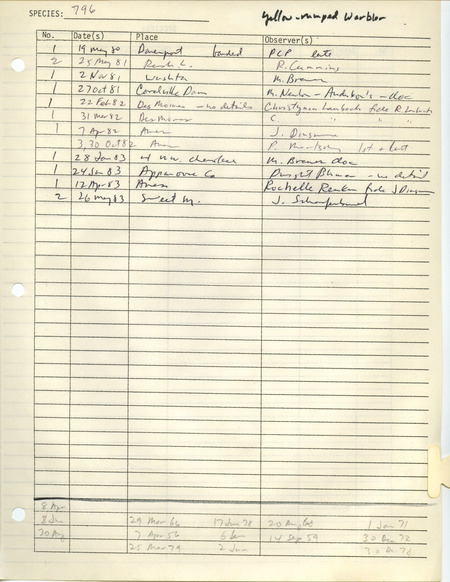 SPECIES: 796 Yellow-rumped Warbler
No. Date(s) Place Observer(s)
1 19 May 80 Davenport banded PCP late
2 25 May 81 R. Cummins
1 2 Nov 81 Washta M. Brewer
1 27 Oct 81 Coralville Dam M. Newlon - Audubon's - doc
1 22 Feb 82 Des Moines - no details fide R.
1 31 Mar 82 Des Moines C. " "
1 7 Apr 82 Ames J. Dinsmore
3, 30 Oct 82 Ames P. 1st + last
1 28 Jan 83 M. Brewer doc
1 24 Jan 83 Appanoose Co Dwight - no detail
1 12 Apr 83 Ames Rochelle fide J Dinsmore
2 26 May 83 Sweet M. J.
8 Apr
8 Jun 29 Mar 66 17 Jan 78 20 Aug 1 Jan 71
20 Aug 7 Apr 56 6 Jan 14 Sep 59 30 Dec 72
25 Mar 79 2 Jun 30 Dec 76